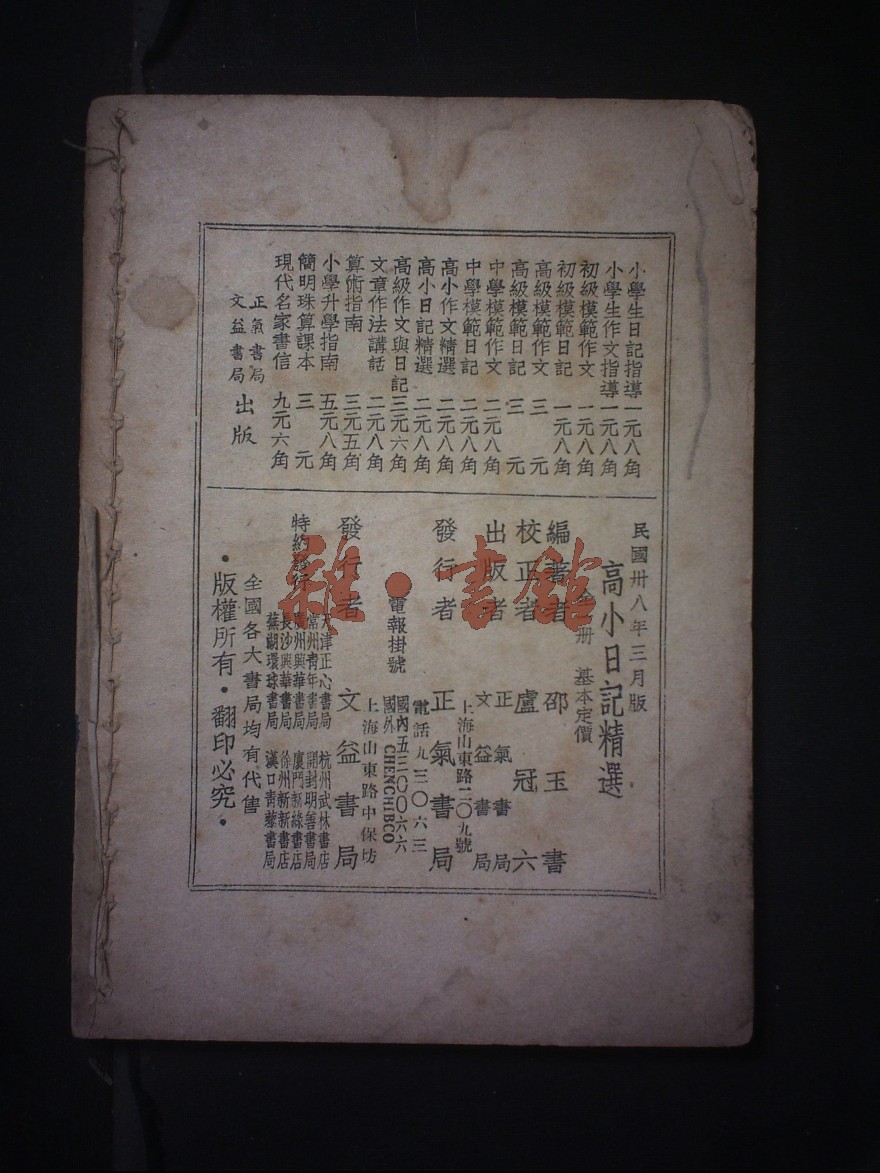 小學生日記指導 一元八角
小學生作文指導 一元八角
初級模範作文 一元八角
初級模範日記 一元八角
高級模範作文 三元
高級模範日記 三元
中學模範作文 二元八角
中學模範日記 二元八角
高小作文精選 二元八角
高小日記精選 二元八角
高級作文與日記 三元六角
文章作法講話 二元八角
算術指南 三元五角
小學升學指南 五元八角
簡明珠算課本 三元
現代名家書信 九元六角
正氣書局
文益書局
出版
民國卅八年三月版
高小日記精選
全一冊 基本定價
編著者 邵玉書
校正者 盧冠六
出版者 正氣書局
文益書局
發行者 正氣書局
上海山東路二〇九號
電話九三〇六三
電報掛號
國內五三〇〇六六
國外CHENCHIBCO
發行者 文益書局
上海山東路中保坊
特約發行
天津正心書局 杭州武林書店
常州青年書局 開封明善書局
廣州興華書局 廈門新綠書店
長沙興華書局 徐州新新書店
蕪湖環球書局 漢口青藜書局
全國各大書局均有代售
•版權所有•翻印必究•
雜•書館